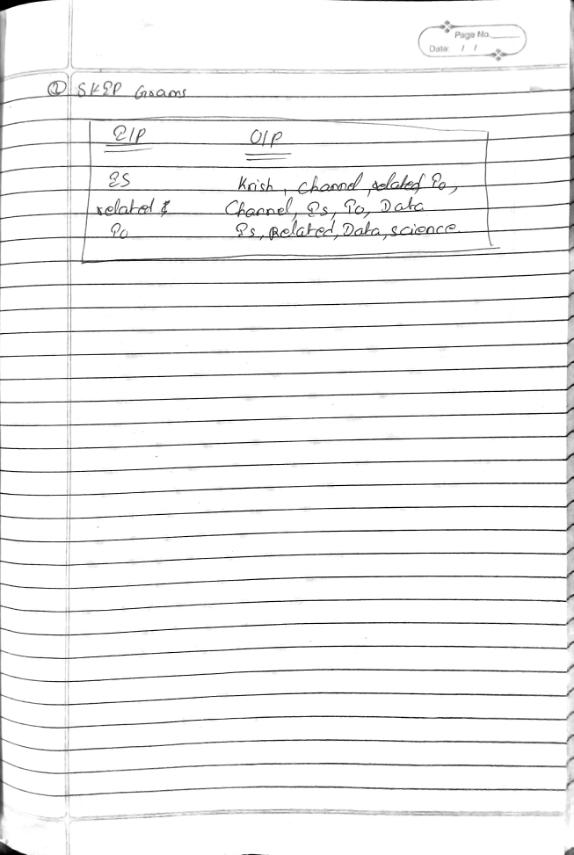 Page No.
Date: / /
② SKIP Grams
I/P O/P
IS Krish, channel, related To,
related Channel, Is, To, Data
To Is, Related, Data, science.